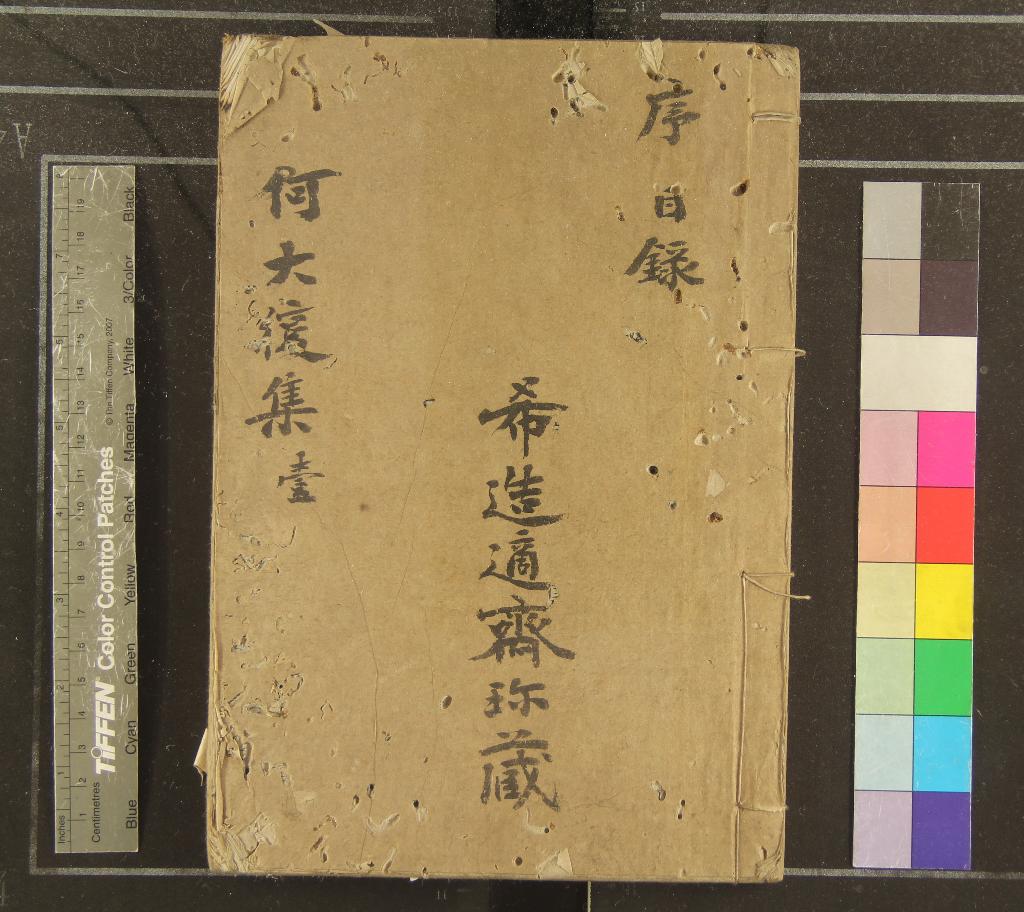 序 目錄
希造適齋珎蔵
何大復集 壹
Inches 1 2 3 4 5 6 7
Centimetres 1 2 3 4 5 6 7 8 9 10 11 12 13 14 15 16 17 18 19
TIFFEN Color Control Patches
© The Tiffen Company, 2007
Blue Cyan Green Yellow Red Magenta White 3/Color Black
A4